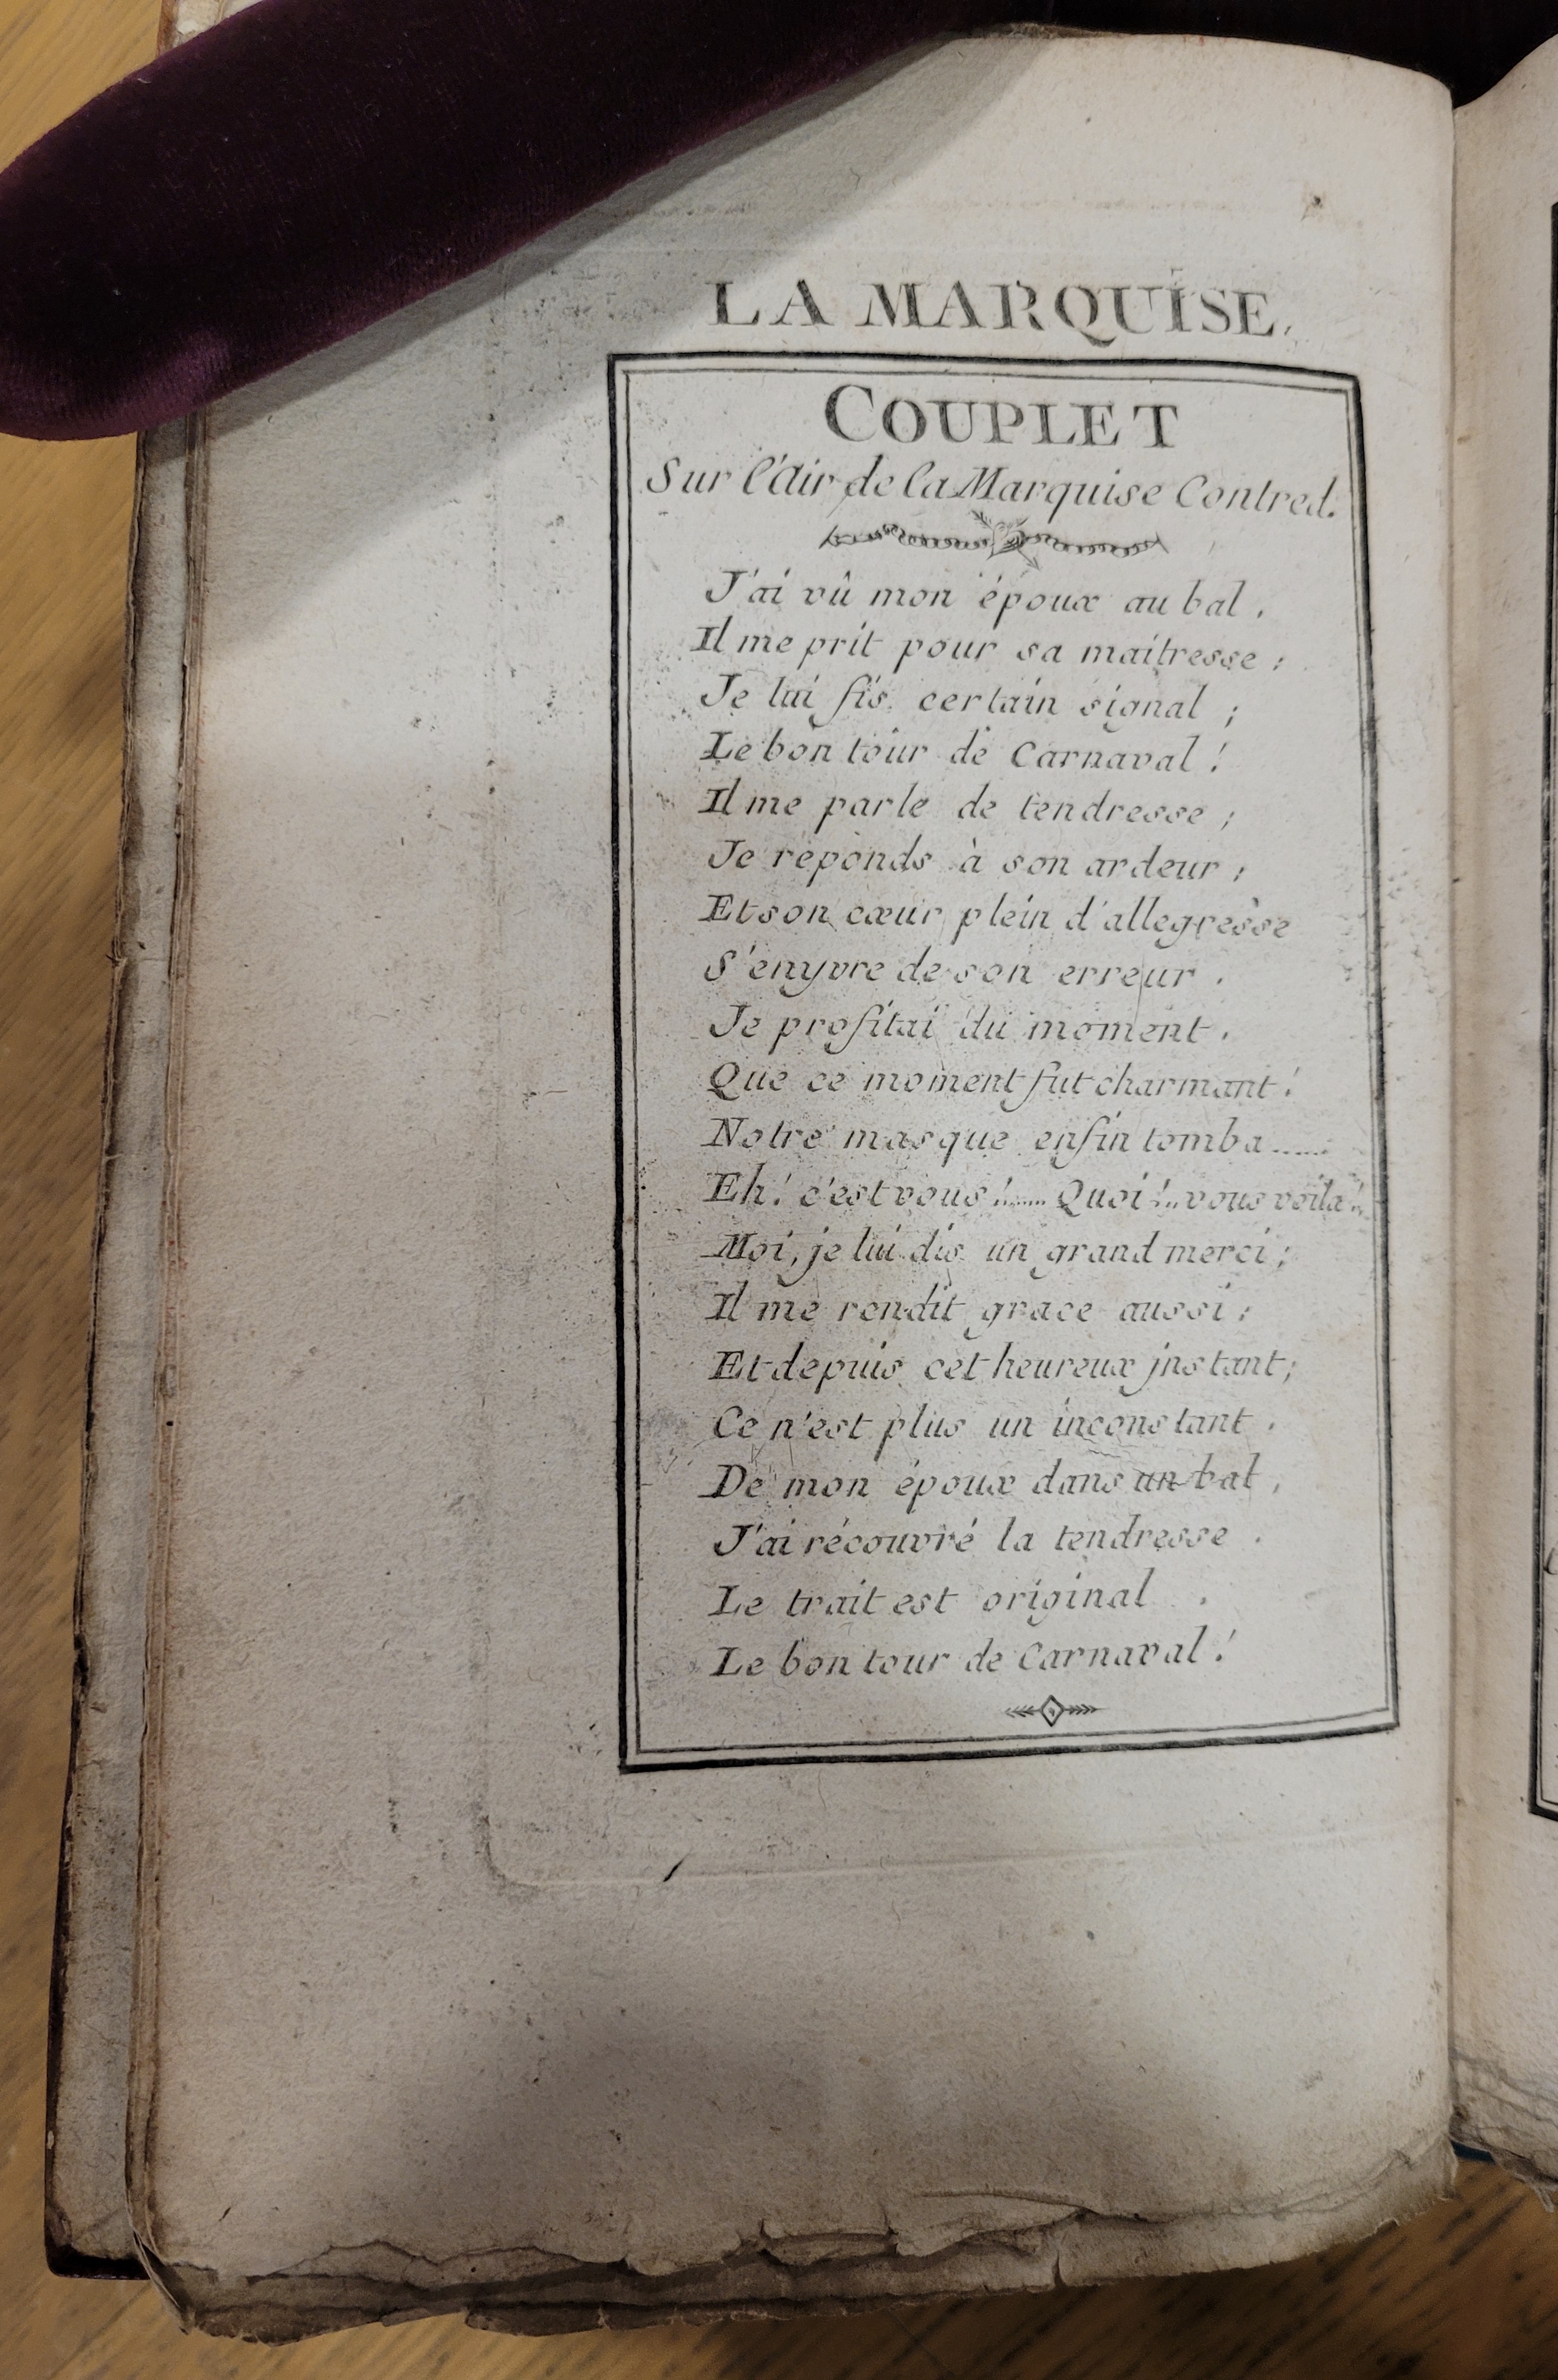 LA MARQUISE.
COUPLET
Sur l'Air de la Marquise Contred.
J'ai vû mon époux au bal.
Il me prit pour sa maitresse;
Je lui fis certain signal;
Le bon tour de Carnaval!
Il me parle de tendresse;
Je réponds à son ardeur;
Et son cœur plein d'allegresse
S'enyvre de son erreur.
Je profitai du moment.
Que ce moment fut charmant!
Notre masque enfin tomba......
Eh! c'est vous!...... Quoi!.. vous voila!..
Moi, je lui dis un grand merci;
Il me rendit grace aussi;
Et depuis cet heureux jnstant;
Ce n'est plus un inconstant.
De mon époux dans un bal,
J'ai récouvré la tendresse.
Le trait est original.
Le bon tour de Carnaval!